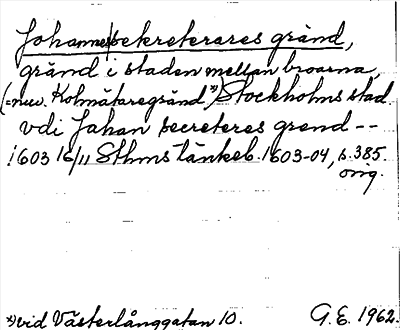 Johannes sekreterares gränd,
gränd i staden mellan broarna,
(=nuv. Kolmätaregränd x)) Stockholms stad.
vdi Jahan secreteres grend --
1603 16/11 Sthms tänkeb. 1603-04, s. 385.
orig.
x) vid Västerlånggatan 10. G.E. 1962.